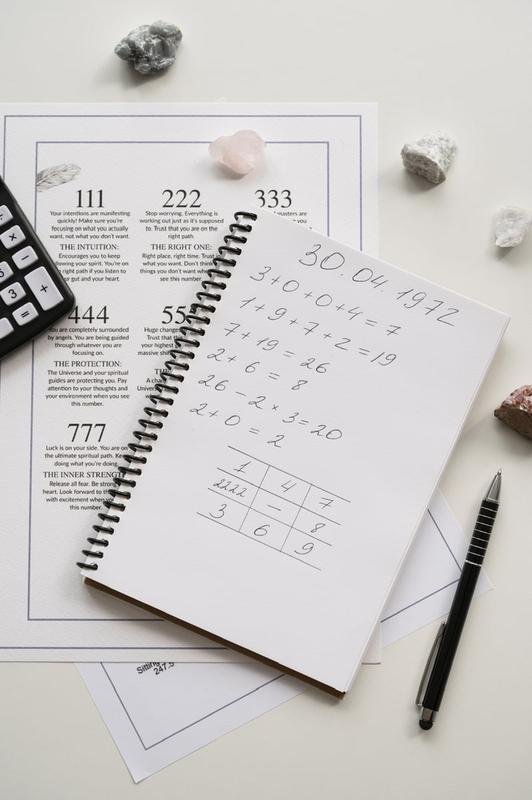 ×
−
3
+
=
111
Your intentions are manifesting
quickly! Make sure you're
focusing on what you actually
want, not what you don't want.
THE INTUITION:
Encourages you to keep
following your spirit. You're on
right path if you listen to
gut and your heart.
222
Stop worrying. Everything is
working out just as it's supposed
to. Trust that you are on the
right path.
THE RIGHT ONE:
Right place, right time. Trust
what you want. Don't think
things you don't want when
see this number.
333
masters are
444
You are completely surrounded
by angels. You are being guided
through whatever you are
focusing on.
THE PROTECTION:
The Universe and your spiritual
guides are protecting you. Pay
attention to your thoughts and
your environment when you see
this number.
55
Huge changes
Trust that
your highest
massive
777
Luck is on your side. You are on
the ultimate spiritual path.
doing what you're doing.
THE INNER STRENGTH
Release all fear. Be strong
heart. Look forward to
with excitement when you
this number.
30.04.1972
3+0+0+4=7
1+9+7+2=19
7+19=26
2+6=8
26-2×3=20
2+0=2
1 4 7
2222 - 8
3 6 9
Sitting
247.5